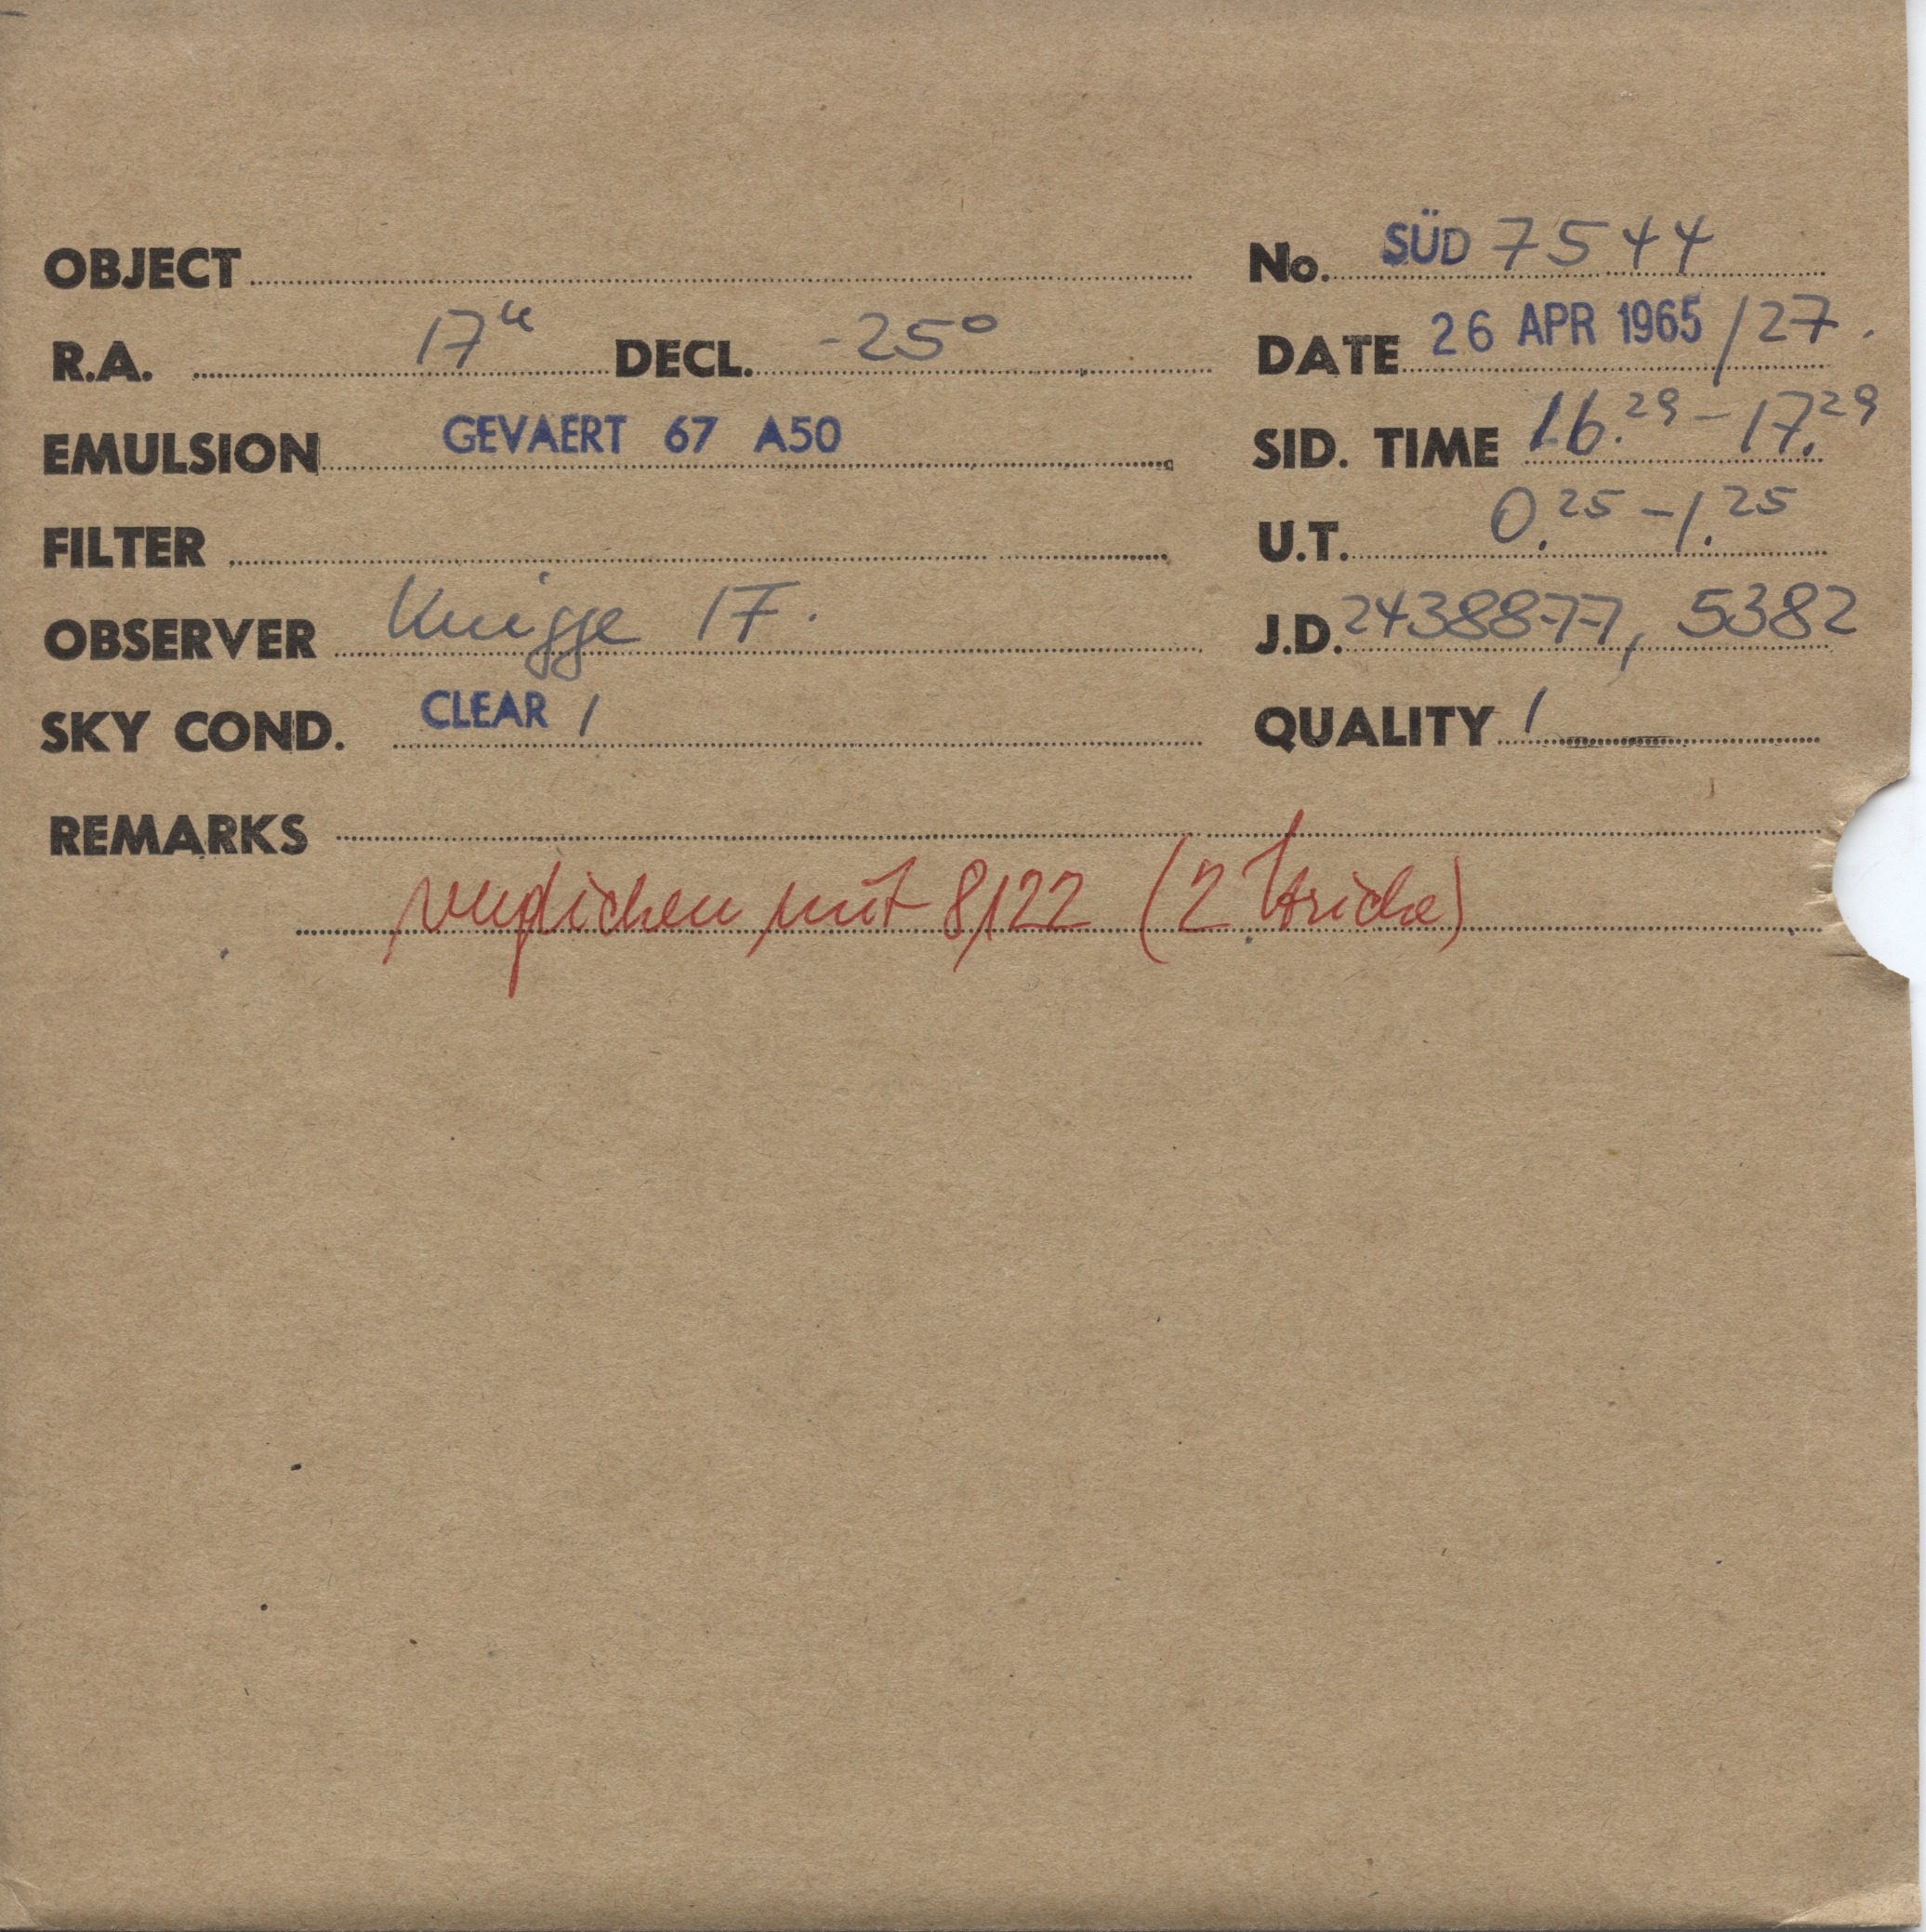 OBJECT
No. SÜD 7544
R.A. 17h DECL. -25°
DATE 26 APR 1965 /27.
EMULSION GEVAERT 67 A50
SID. TIME 16.29 - 17.29
FILTER
U.T. 0.25 - 1.25
OBSERVER Knigge 17.
J.D. 2438877, 5382
SKY COND. CLEAR 1
QUALITY 1
REMARKS
verglichen mit 8122 (2 Striche)